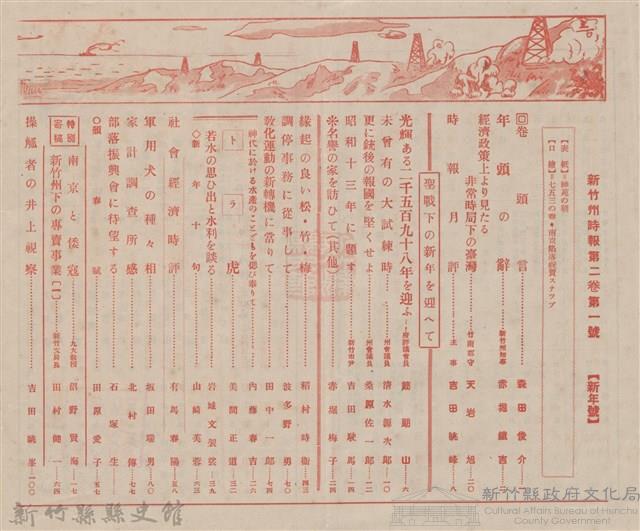 新竹州時報第二卷第一號 【新年號】
【表紙】＝神苑の朝
【口繪】＝七五三の春・南京陷落祝賀スナツプ
卷頭言 森田俊介
年頭の辭 新竹州知事 赤堀鐵吉
經濟政策上より見たる
非常時局下の臺灣 竹南郡守 天岩旭
時報月評 主事 吉田晀峰 八
聖戰下の新年を迎へて
光輝ある二千五百九十八年を迎ふ 府評議會員 山 六
未曾有の大試練時 州會議員 清水源次郎 一〇
更に銃後の報國を堅くせよ 州會議員 桑原佐一郎 一二
昭和十三年に題す 新竹市尹 吉田駛馬 一四
※名譽の家を訪ひて(其他) 赤堀梅子 二四
緣起の良い松・竹・梅 稻村時衛 四三
調停事務に從事して 波多野勇 七〇
教化運動の新轉機に當りて 田中一郎 七四
神代に於ける水產のことゞもを偲び奉りて 內藤春吉 二六
トラ 虎 美間正道 三二
若水の思ひ出と水利を談る 岩城文袈裟 三九
◇新年十句 山崎芙蓉 六三
社會經濟時評 有馬春陽 五八
軍用犬の種々相 坂田瑞男 八〇
家計調查所感 北村傳 七七
部落振興會に待望する 石塚生
◇頌春賦 田原愛子 五七
特別寄稿
南京と倭寇 九大教授 沼野賢海 一七
新竹州下の專賣事業〔一〕 新竹支局長 田村健一 六四
操觚者の井上視察 吉田晀峯 一〇〇
新竹縣縣史館
新竹縣政府文化局
Cultural Affairs Bureau of Hsinchu County Government